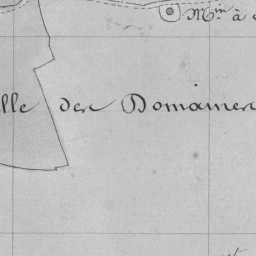 Mⁱⁿ à
lle des Domaines